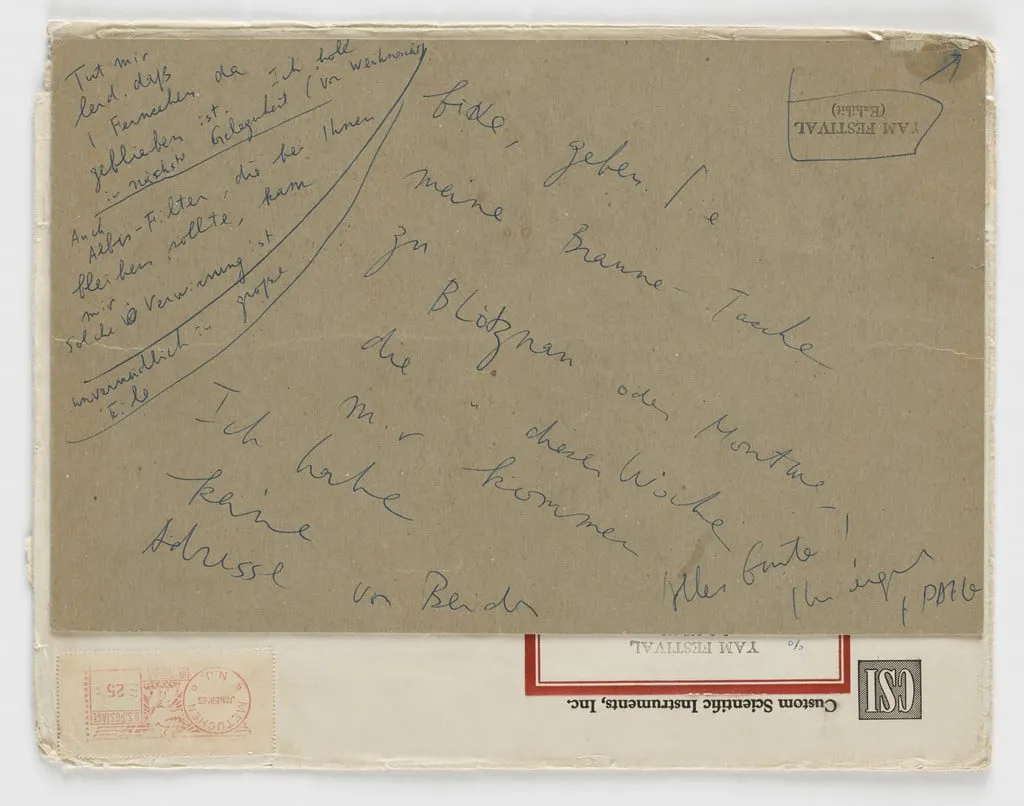 Tut mir
leid, daß
1 Fernsehen da
geblieben ist. Ich hole
in nächste Gelegenheit (vor Weihnacht)
Auch
-Filter, die bei Ihnen
bleiben sollte, kam
mir
Solche Verwirrung ist
unvermeidlich in große
Eile
bitte, geben Sie
meine Braune-Tasche
zu
Blötzman oder
die in dieser Woche
mir kommen
Ich habe
keine
Adresse von Beiden
Alles Gute!
Ihr
YAM FESTIVAL
(Exhibit)
c/o
YAM FESTIVAL
Custom Scientific Instruments, Inc.
CSI
METUCHEN
N.J.
U.S. POSTAGE
25